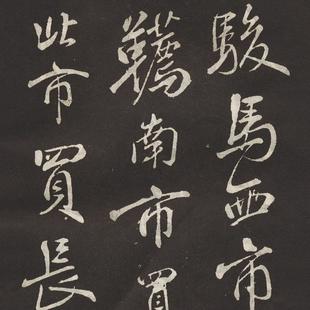 駿馬西市
韉南市買
北市買長